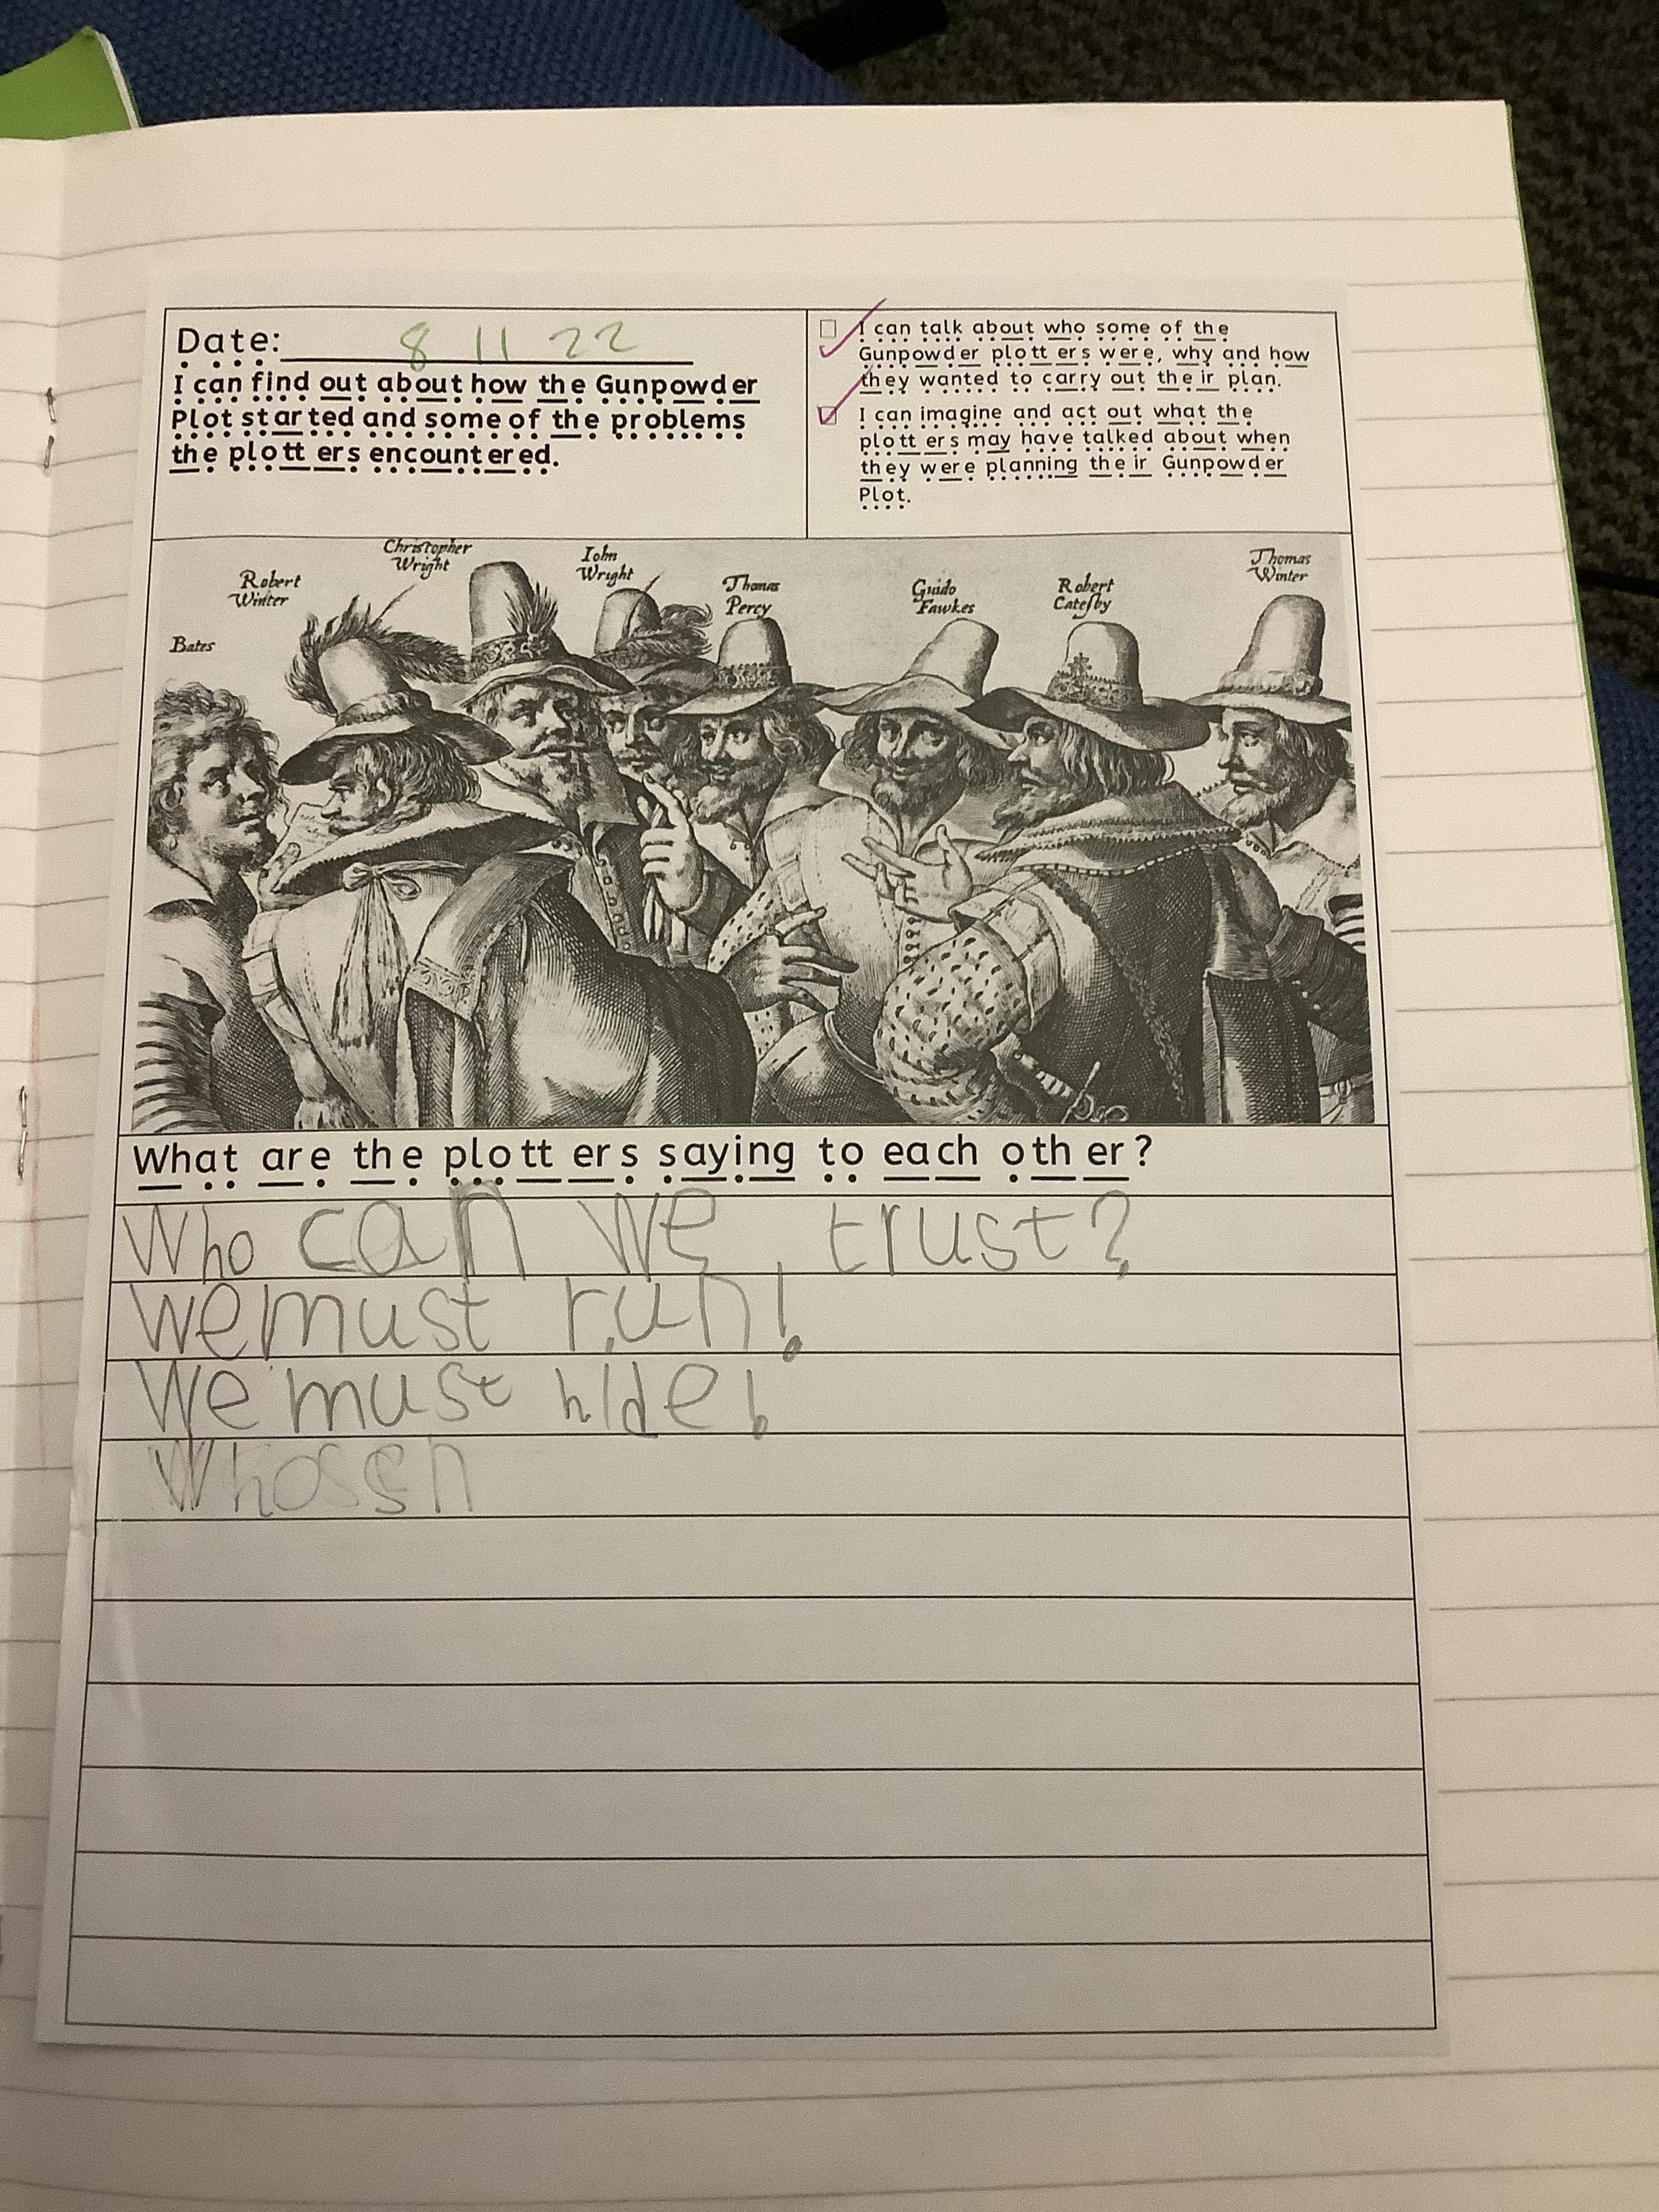 Date: 8 11 22
I can find out about how the Gunpowder
Plot started and some of the problems
the plotters encountered.
I can talk about who some of the
Gunpowder plotters were, why and how
they wanted to carry out their plan.
I can imagine and act out what the
plotters may have talked about when
they were planning their Gunpowder
Plot.
Bates
Robert
Winter
Christopher
Wright
Iohn
Wright
Thomas
Percy
Guido
Fawkes
Robert
Catesby
Thomas
Winter
What are the plotters saying to each other?
Who can we trust?
We must run!
We must hide!